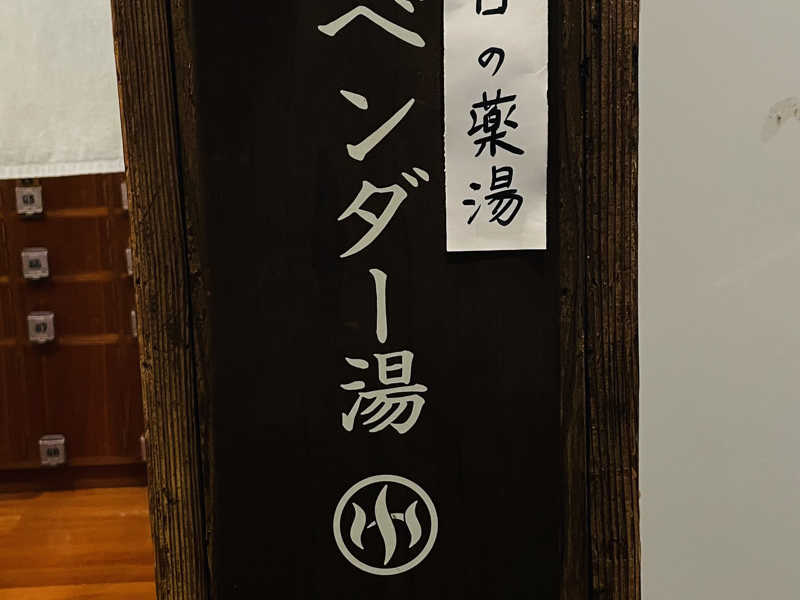 の薬湯
ベンダー湯